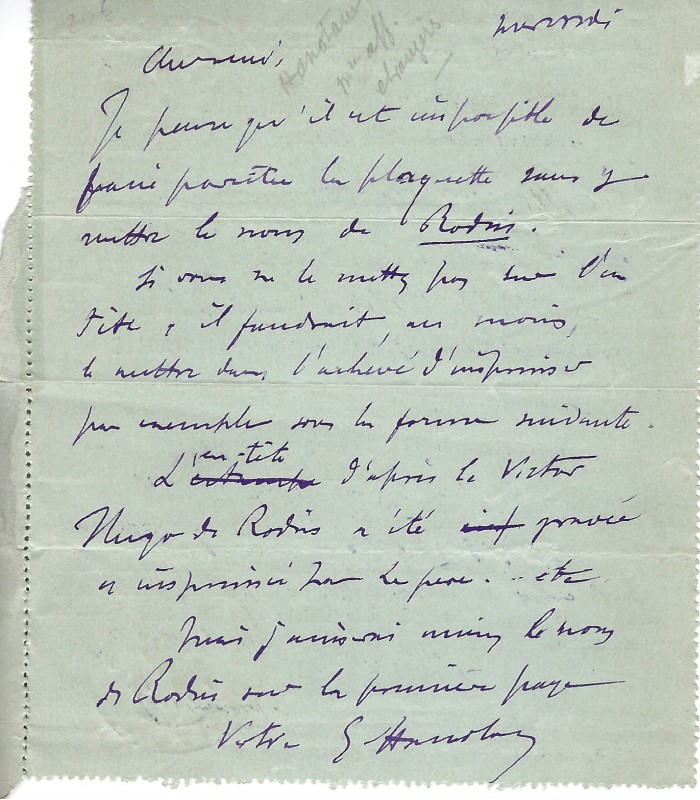 mercredi
Hanotaux
min aff.
etrangères
Cher ami,
Je pense qu'il est impossible de
faire paraître la plaquette sans y
mettre le nom de Rodin.
Si vous ne le mettez pas sur l'en
tête, il faudrait, au moins,
le mettre dans l'achevé d'imprimer
par exemple sous la forme suivante.
L'en-tête d'après le Victor
Hugo de Rodin a été gravée
et imprimée par Lepere... etc
Mais j'aimerais mieux le nom
de Rodin sur la première page
Votre G Hanotaux